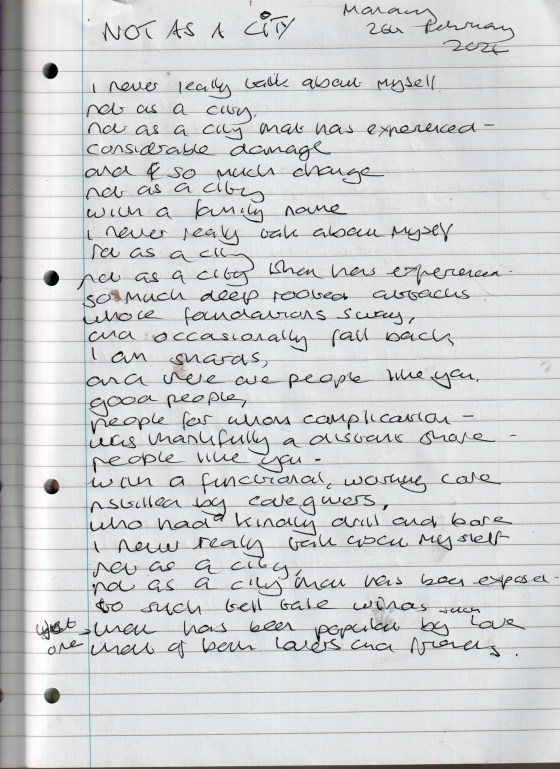 NOT AS A CITY
Monday
26th February
I never really talk about myself
not as a city,
not as a city that has experienced -
considerable damage
and & so much change
not as a city
with a family name
I never really talk about myself
not as a city
not as a city which has experienced
so much deep rooted attacks
whose foundations sway,
and occasionally fall back,
I am shards,
and there are people like you,
good people,
people for whom complication -
was thankfully a distant shore -
people like you -
with a functional, working core
instilled by caregivers,
who had a kindly drill and bore
I never really talk about myself
not as a city,
not as a city that has been exposed -
to such tell tale winds
yet one
that has been populated by love
that of both lovers and friends.